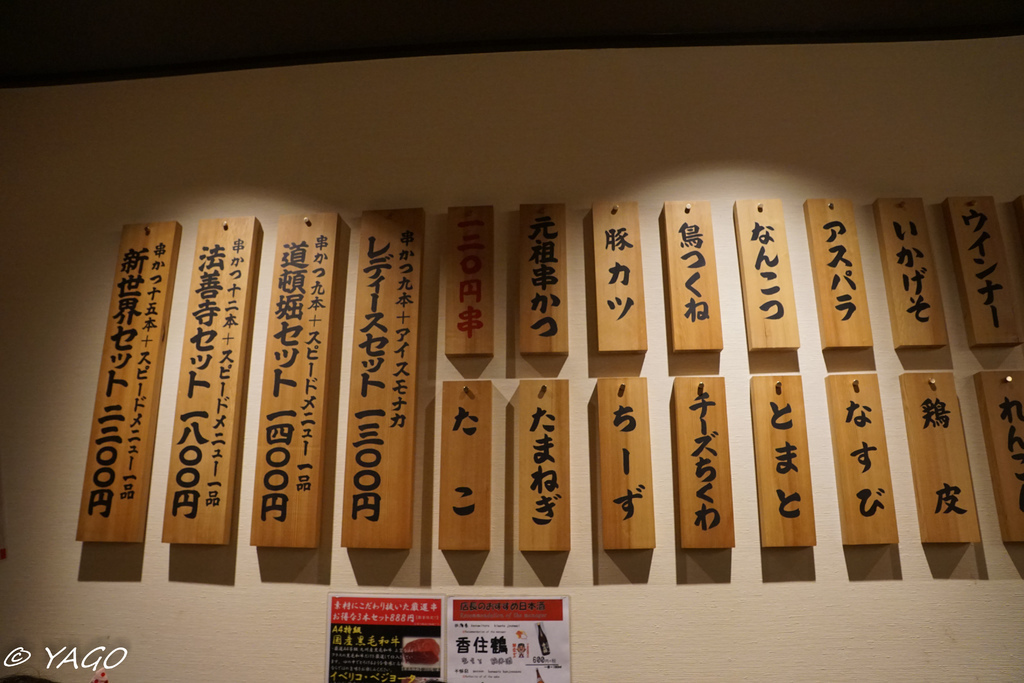 串かつ十五本＋スピードメニュー一品
新世界セット 二二〇〇円
串かつ十二本＋スピードメニュー一品
法善寺セット 一八〇〇円
串かつ九本＋スピードメニュー一品
道頓堀セット 一四〇〇円
串かつ九本＋アイスモナカ
レディースセット 一三〇〇円
一二〇円串
元祖串かつ
豚カツ
鳥つくね
なんこつ
アスパラ
いかげそ
ウインナー
たこ
たまねぎ
ちーず
チーズちくわ
とまと
なすび
鶏皮
れんこん
素材にこだわり抜いた厳選串
お得な3本セット888円
A4特級
国産黒毛和牛
イベリコ・ベジョータ
店長のおすすめ日本酒
香住鶴
© YAGO